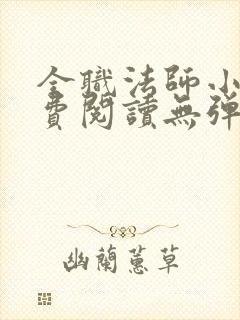 全職法師小
費閱讀無彈
幽蘭蕙草